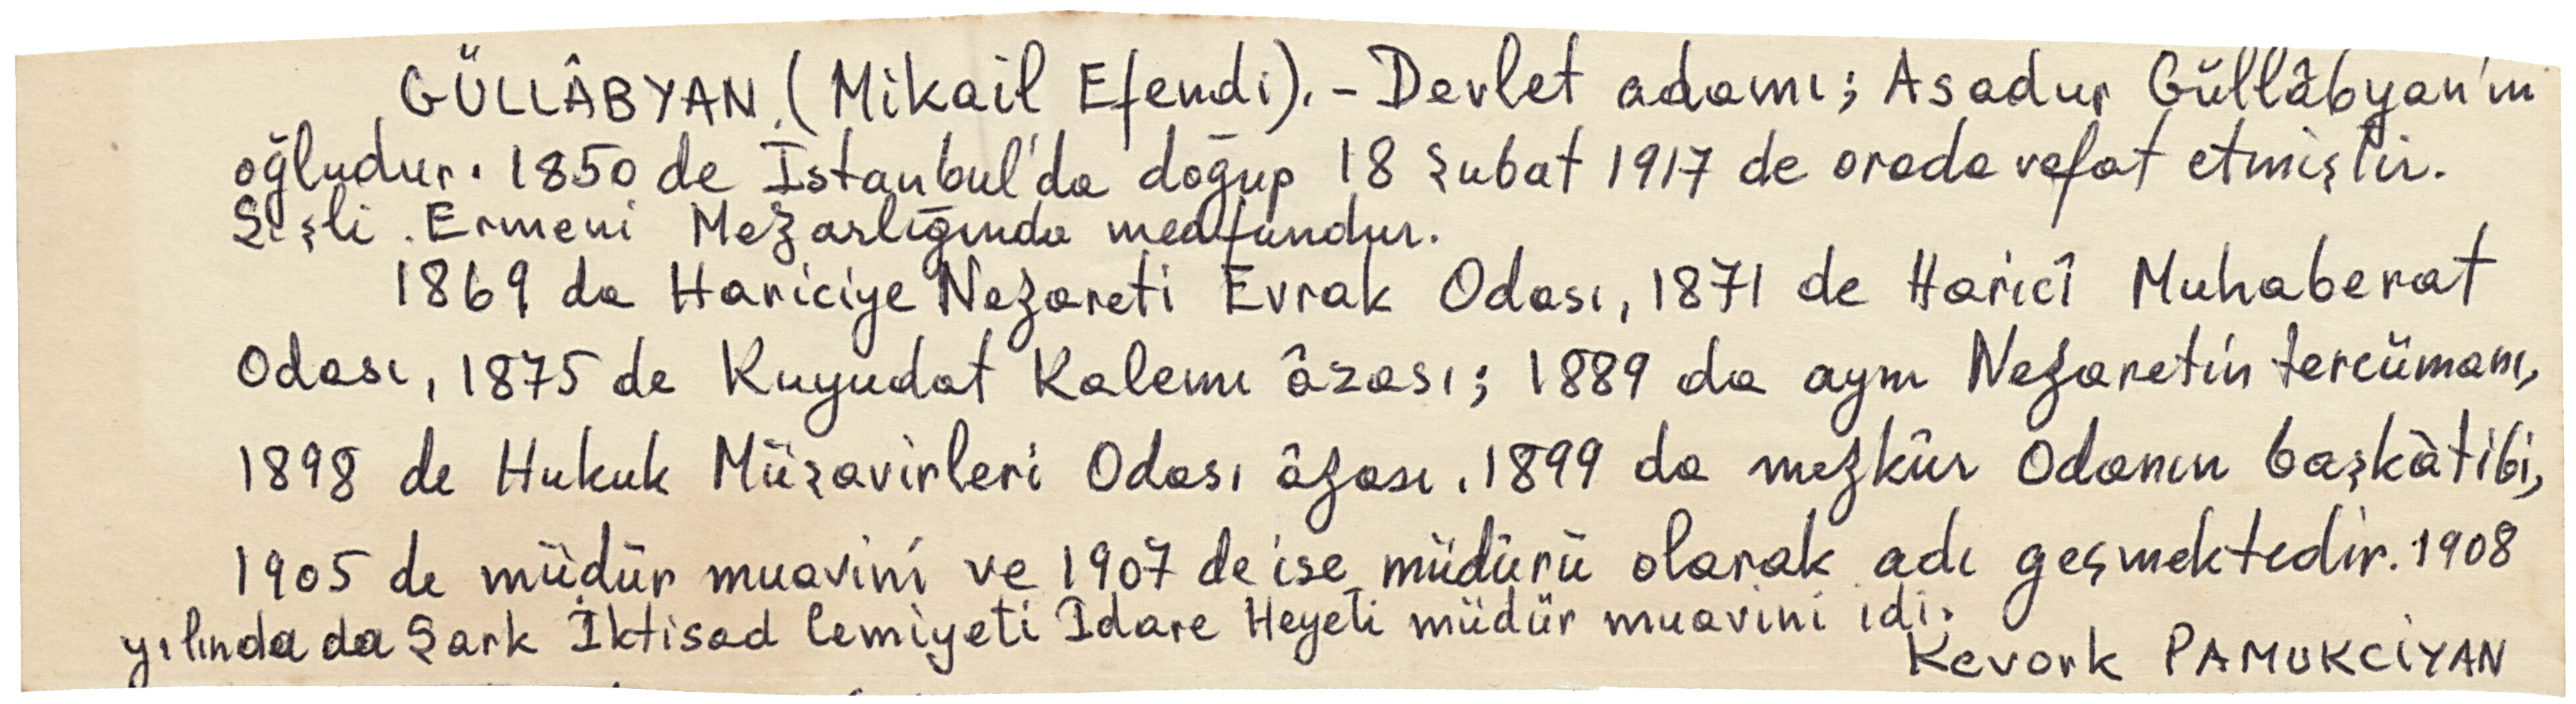 GÜLLÂBYAN (Mikail Efendi).- Devlet adamı; Asadur Güllâbyan'ın
oğludur. 1850 de İstanbul'da doğup 18 Şubat 1917 de orada vefat etmiştir.
Şişli Ermeni Mezarlığında medfundur.
1869 da Hariciye Nezareti Evrak Odası, 1871 de Haricî Muhaberat
Odası, 1875 de Kuyudat Kalemi âzası; 1889 da aynı Nezaretin tercümanı,
1898 de Hukuk Müşavirleri Odası âzası. 1899 da mezkûr Odanın başkâtibi,
1905 de müdür muavini ve 1907 de ise müdürü olarak adı geçmektedir. 1908
yılında da Şark İktisad Cemiyeti İdare Heyeti müdür muavini idi.
Kevork PAMUKCİYAN